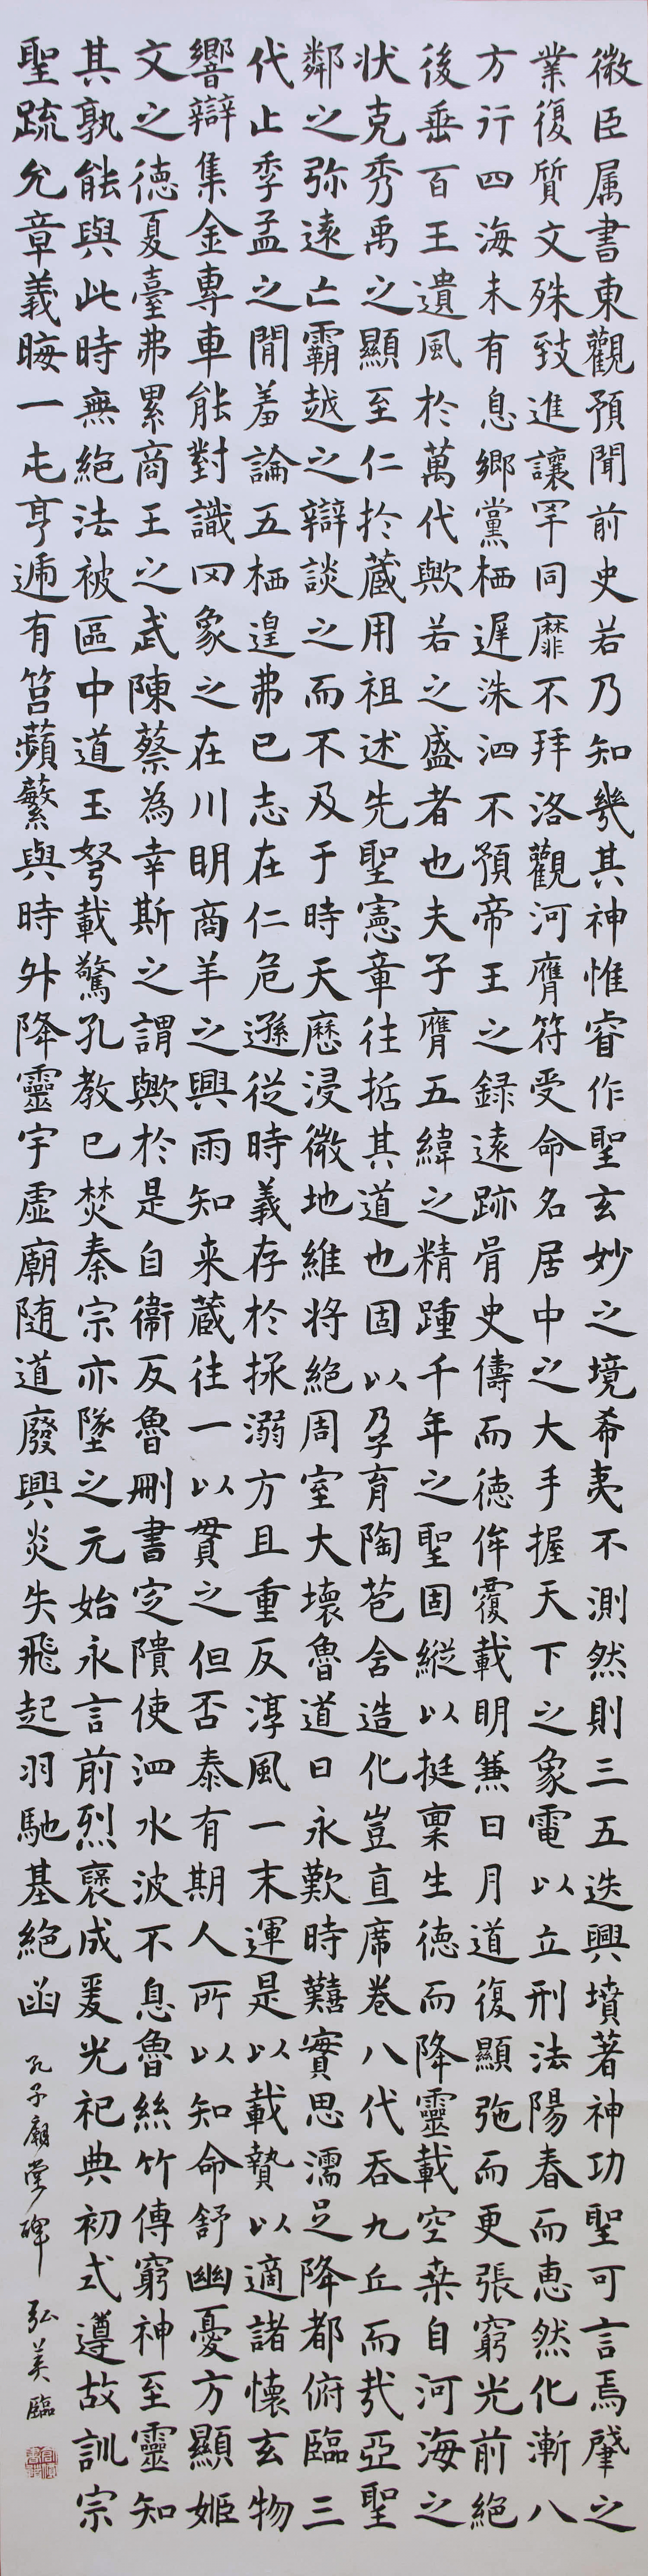 微臣属書東觀預聞前史若乃知幾其神惟睿作聖玄妙之境希夷不測然則三五迭興墳著神功聖可言焉肇之
業復質文殊致進讓罕同靡不拜洛觀河膺符受命名居中之大手握天下之象電以立刑法陽春而恵然化漸八
方行四海未有息郷黨栖遅洙泗不預帝王之録遠跡胥史儔而徳侔覆載明兼日月道復顯弛而更張窮光前絶
後垂百王遺風於萬代歟若之盛者也夫子膺五緯之精踵千年之聖固縦以挺稟生徳而降靈載空桒自河海之
状克秀禹之顯至仁於蔵用祖述先聖憲章往哲其道也固以孕育陶苞舍造化豈直席巻八代吞九丘而哉亞聖
鄰之弥遠亡霸越之辯談之而不及于時天歴浸微地維将絶周室大壊魯道日永歎時囏實思濡足降都俯臨三
代止季孟之間羞論五栖遑弗已志在仁危遜従時義存於拯溺方且重反淳風一末運是以載贄以適諸懐玄物
響辯集金專車能對識罔象之在川明商羊之興雨知来蔵往一以貫之但否泰有期人所以知命舒幽憂方顯姫
文之徳夏臺弗累商王之武陳蔡為幸斯之謂歟於是自衞反魯刪書定隤使泗水波不息魯絲竹傳窮神至靈知
其孰能與此時無絶法被區中道玉弩載驚孔教已焚秦宗亦墜之元始永言前烈襃成爰光祀典初式遵故訓宗
聖疏允章義晦一屯亨逓有筥蘋蘩與時舛降靈宇虚廟随道廢興炎失飛起羽馳基絶函 孔子廟堂碑 弘美臨